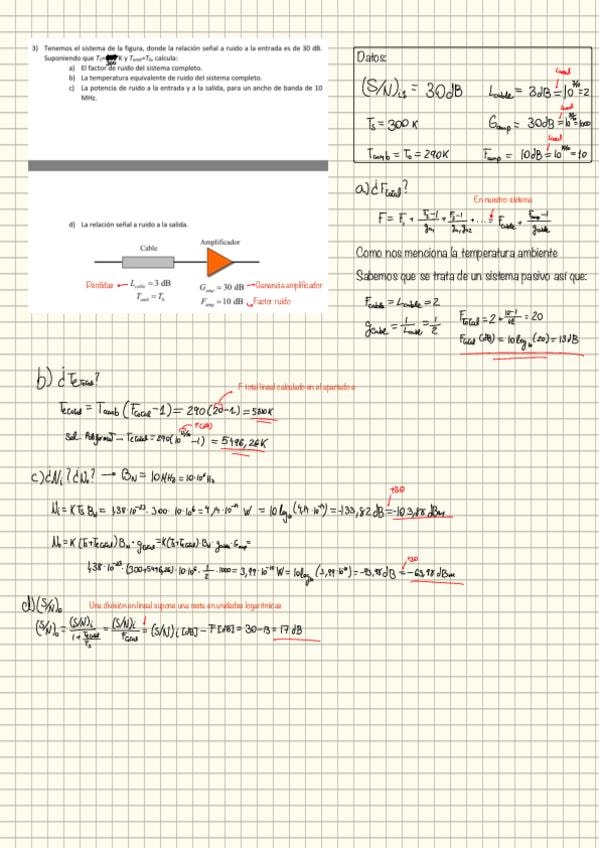 3) Tenemos el sistema de la figura, donde la relación señal a ruido a la entrada es de 30 dB.
Suponiendo que T K y Tamb=T0, calcula:
a) El factor de ruido del sistema completo.
b) La temperatura equivalente de ruido del sistema completo.
c) La potencia de ruido a la entrada y a la salida, para un ancho de banda de 10
MHz.
d) La relación señal a ruido a la salida.
Cable
Amplificador
Pérdidas ← Lcable = 3 dB
Tamb = T0
Gamp = 30 dB → Ganancia amplificador
Famp = 10 dB → Factor ruido
Datos:
(S/N)is = 30dB
Ts = 300 K
Tamb = T0 = 290K
lineal
Lcable = 3dB = 10^3/10 = 2
lineal
Gamp = 30dB = 10^30/10 = 1000
lineal
Famp = 10dB = 10^10/10 = 10
a) ¿Ftotal?
En nuestro sistema
F = F1 + F2-1/g1 + F3-1/g1·g2 + ... = Fcable + Famp-1/gcable
Como nos menciona la temperatura ambiente
Sabemos que se trata de un sistema pasivo así que:
Fcable = Lcable = 2
gcable = 1/Lcable = 1/2
Ftotal = 2 + 10-1/1/2 = 20
Ftotal (dB) = 10 log10 (20) = 13dB
b) ¿Tetotal?
F total lineal calculado en el apartado a
Tetotal = Tamb (Ftotal - 1) = 290 (20-1) = 5510K
F(dB)
Sol Poliformat → Tetotal = 290 (10^13/10 - 1) = 5496,26K
c) ¿Ni? ¿No? → BN = 10MHz = 10·10^6 Hz
+30
Ni = K Ts BN = 1,38·10^-23 · 300 · 10·10^6 = 4,14·10^-14 W = 10 log10 (4,14·10^-14) = -133,82 dB = -103,83 dBm
No = K (Ts+Tetotal) BN · gtotal = K (Ts+Tetotal) · BN · gcable · Gamp =
+30
1,38·10^-23 · (300+5496,26) · 10·10^6 · 1/2 · 1000 = 3,99·10^-10 W = 10log10 (3,99·10^-10) = -93,98 dB = -63,98 dBm
d) (S/N)o
Una división en lineal supone una resta en unidades logarítmicas
(S/N)o = (S/N)i/1+Tetotal/Ts = (S/N)i/Ftotal = (S/N)i [dB] - F [dB] = 30-13 = 17 dB